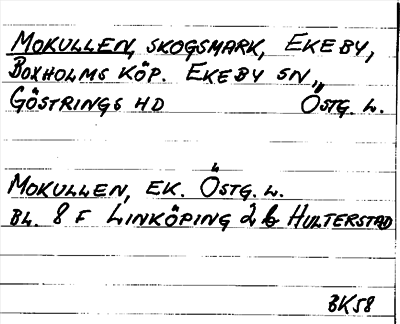 MOKULLEN, SKOGSMARK, EKEBY,
BOXHOLMS KÖP. EKEBY SN,
GÖSTRINGS HD ÖSTG. L.
MOKULLEN, EK. ÖSTG. L.
BL. 8 F LINKÖPING 2 b HULTERSTAD
BK58